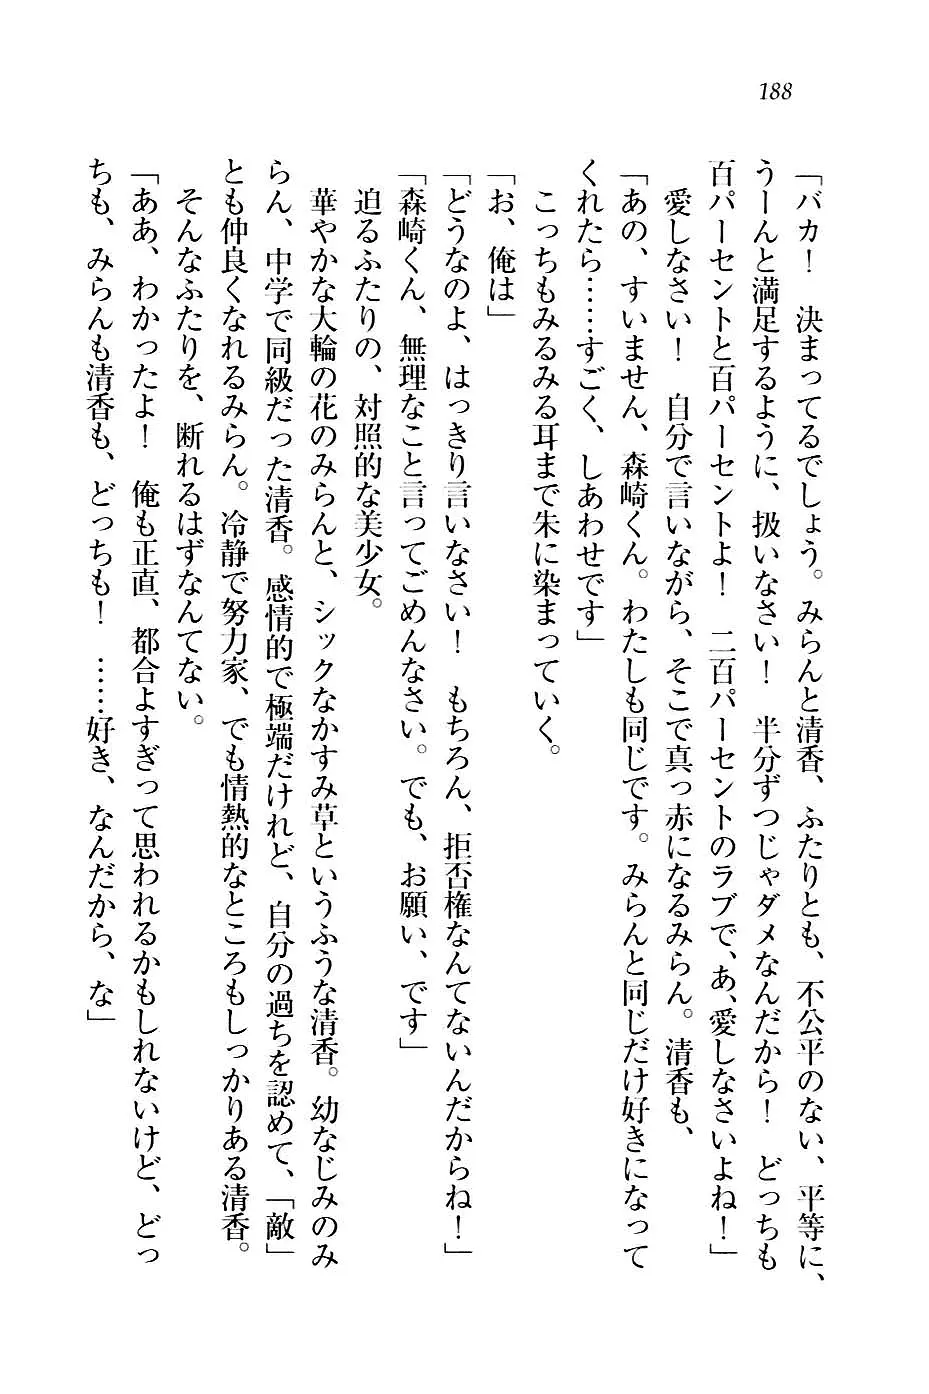 188
「バカ！　決まってるでしょう。みらんと清香、ふたりとも、不公平のない、平等に、
うーんと満足するように、扱いなさい！　半分ずつじゃダメなんだから！　どっちも
百パーセントと百パーセントよ！　二百パーセントのラブで、あ、愛しなさいよね！」
　愛しなさい！　自分で言いながら、そこで真っ赤になるみらん。清香も、
「あの、すいません、森崎くん。わたしも同じです。みらんと同じだけ好きになって
くれたら……すごく、しあわせです」
　こっちもみるみる耳まで朱に染まっていく。
「お、俺は」
「どうなのよ、はっきり言いなさい！　もちろん、拒否権なんてないんだからね！」
「森崎くん、無理なこと言ってごめんなさい。でも、お願い、です」
　迫るふたりの、対照的な美少女。
　華やかな大輪の花のみらんと、シックなかすみ草というふうな清香。幼なじみのみ
らん、中学で同級だった清香。感情的で極端だけれど、自分の過ちを認めて、「敵」
とも仲良くなれるみらん。冷静で努力家、でも情熱的なところもしっかりある清香。
　そんなふたりを、断れるはずなんてない。
「ああ、わかったよ！　俺も正直、都合よすぎって思われるかもしれないけど、どっ
ちも、みらんも清香も、どっちも！　……好き、なんだから、な」